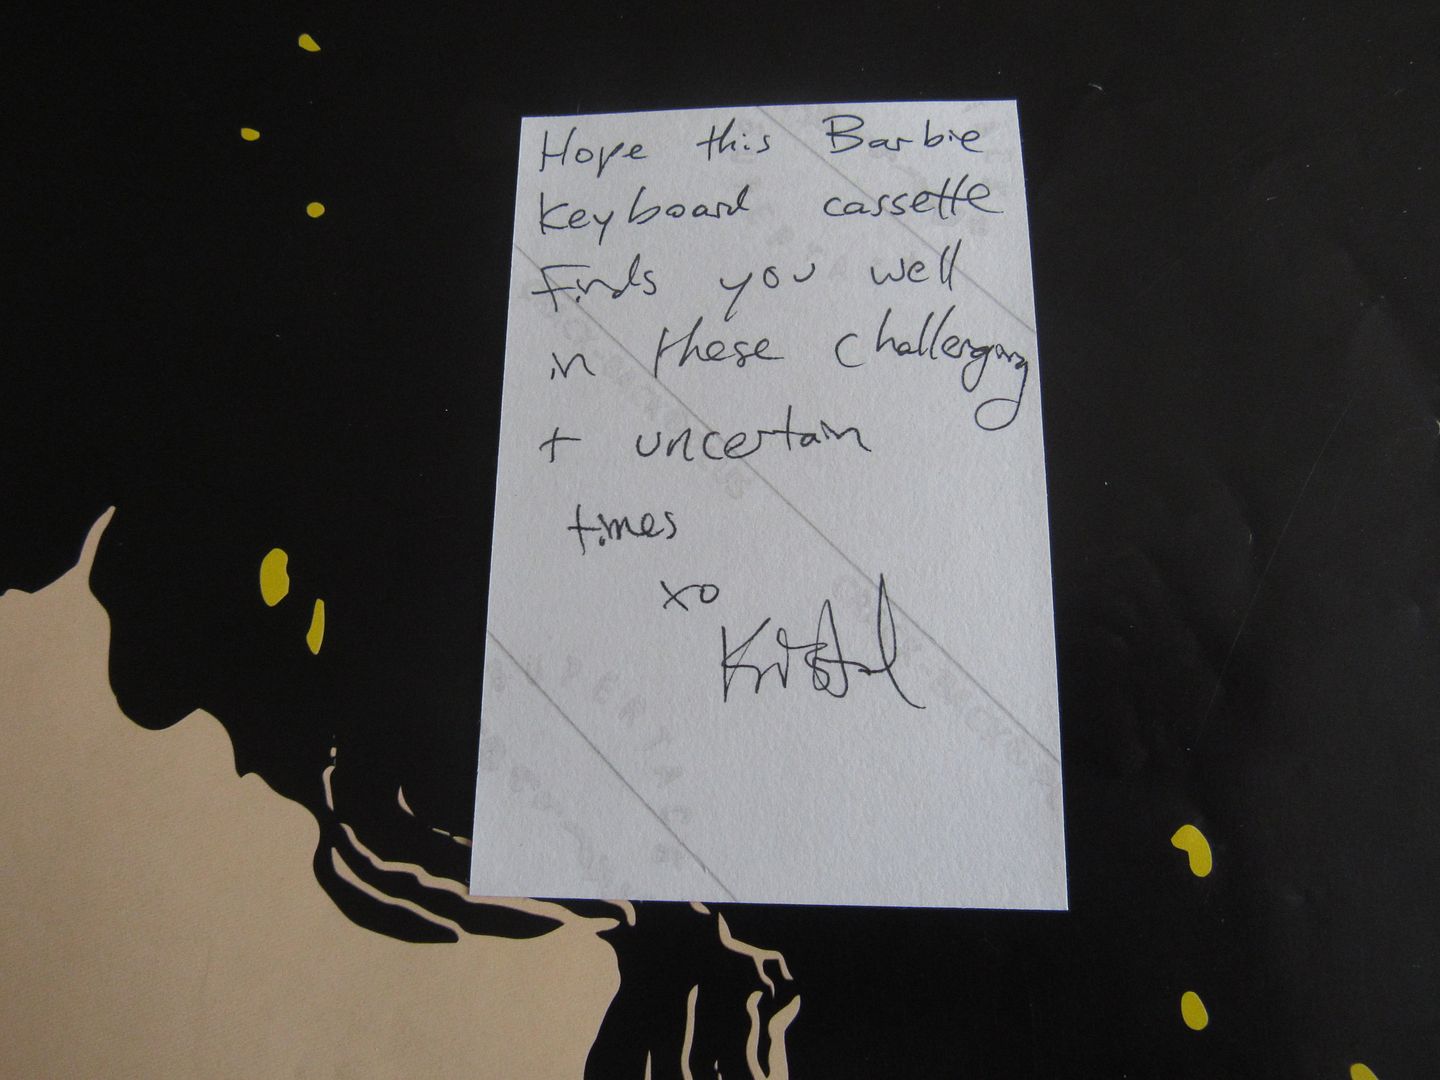 Hope this Barbie
Keyboard cassette
Finds you well
in these challenging
+ uncertain
times
xo